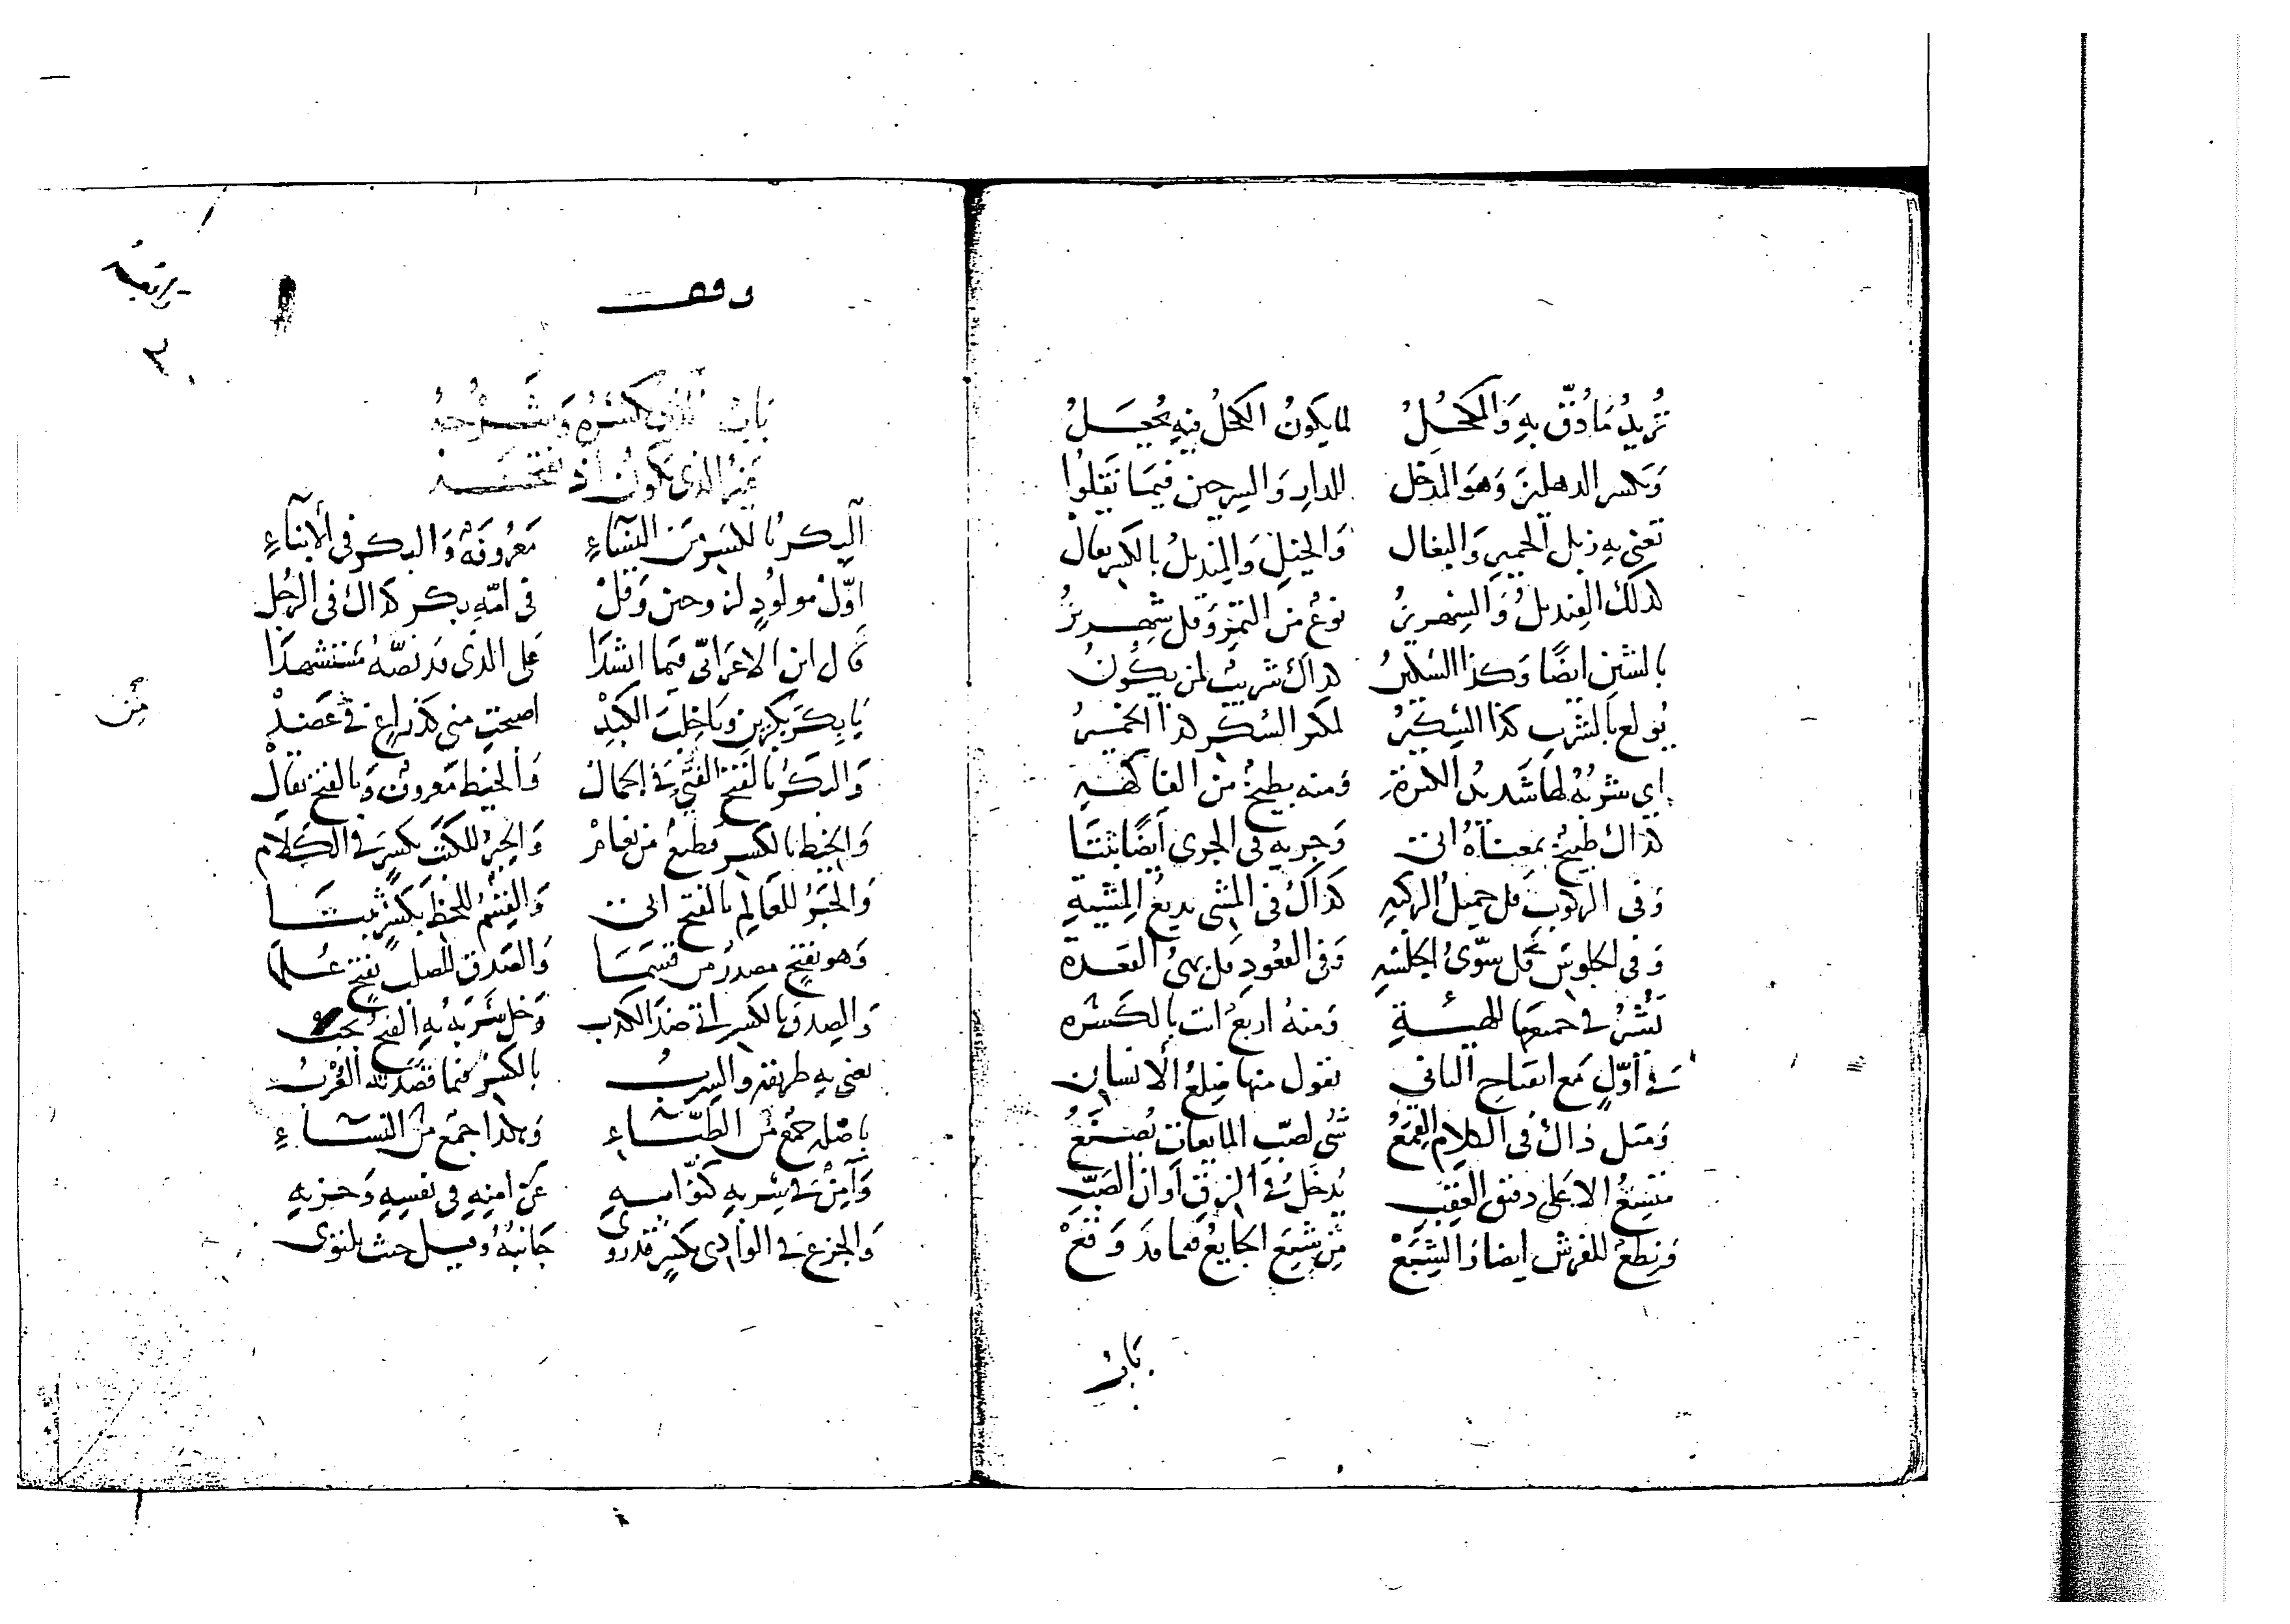 تُرِيدُ مَا دُقَّ بِهِ وَالمُكْحُلُ لما يكونُ الكحلُ فيهِ يُجعَلُ
وَيكسر الدهليز وَهوَ المدخل للدار وَالسِرجين فيمَا نَقَلوُا
تعني بِهِ زبل الحمير وَالبغال وَالخيل وَالمِنديلُ بالكسر يقال
كذلك القِنديلُ وَالسِهريزُ نوعٌ من التمر وَقل شِهريزُ
بالشين ايضًا وَكذا السِكينُ كذاك شريبٌ لمن يكونُ
يُولع بالشرب كذا السِكيرُ لمكثر السكر كذا الخميرُ
اي شربُهُ لهَا شديدُ الكثرةِ وَمنه بطيخٌ من الفاكهةِ
كذاك طبيخٌ بمعناهُ اتى وَجريه في الجري أيضًا ثبتَا
وَفي الركوبِ قل جميلُ الركبهِ كذاك في المشي بديعُ المِشيةِ
وَفي الجلوس قل سوّىُ الجلسَهِ وَفي القعودِ قل بهىُ القعدة
تُشيرُ في جميعهَا للهيئَةِ وَمنهُ اربعٌ اتت بالكَسْره
في أوّلٍ مَع انفتاح الثاني تقول منها ضِلعُ الانسان
وَمثل ذاك في الكلام القِمَعُ شئ لصبّ المايعات يُصنعُ
متسِعُ الاعلى دقيق العَقِبِ يُدخَلُ في الزِقّ اوَان الصَبّ
وَنِطعٌ للفرش ايضا وَالشِبَعْ مِن شبعَ الجايعُ فيما قد وَقَعْ
بَابُ
وقف
بَابُ الذي كسَرْهُ وَشَرْحهُ
غيرُ الذي يكونُ اذ تفتحه
اَلبِكرُ بالكسر مَن النسَاءِ مَعرُوفَةٌ وَالبكر في الأبناءِ
اوّلُ مولودٍ لزوجين وَقلْ في امّهِ بكر كذاك في الرجُل
قال ابن الاعرَابيّ فيما انشدَا عَلى الذي قد نصّهُ مُستشهدَا
يَا بِكرَ بِكرين وَيَا خِلبَ الكَبِدْ اصبحتَ مني كذراعٍ في عَضُدْ
وَالبَكرُ بالفتح الفتيّ في الجمال وَالخيط مَعروفٌ وَبالفتح يقال
وَالخيط بالكسر قطيعٌ من نعَامْ وَالحِبرُ للكَتب بكسرٍ في الكَلام
وَالحَبرُ للعَالِمِ بالفتح اتى وَالقِسْمُ للحظّ بكسرٍ ثبتَا
وَهو بفتحٍ مصدرٌ من قَسَمَا وَالصَدق للصلب بفتحٍ عُلِمَا
وَالصِدق بالكسر اتى ضدّ الكذب وَخل سَربَهُ بهِ الفتحُ يجبْ
تعني بهِ طريقه وَالسِربُ بالكسر فيما قصَدَتْهُ العُرْبُ
باصله جمعٌ من الظبَاءِ وَهكذا جمعٌ من النسَاءِ
وَآمِنٌ في سربهِ عَن امنهِ في نفسِهِ وَحزبهِ
وَالجزعُ في الوادي بكسرٍ قد روى جَانبُهُ وقيل حيث يلتوى